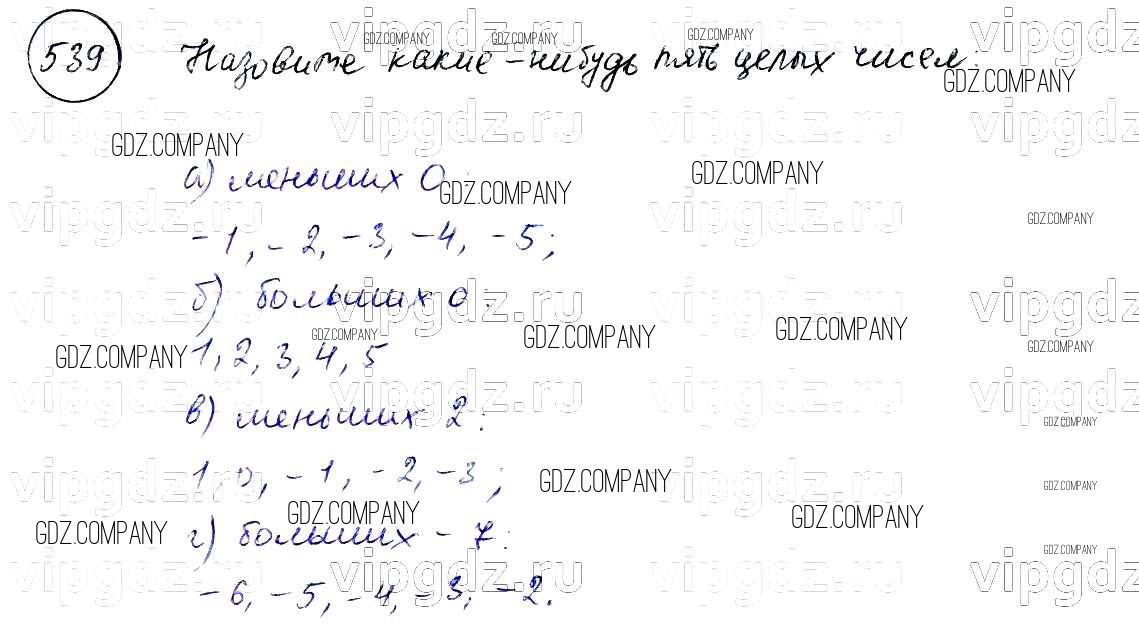 539 Назовите какие-нибудь пять целых чисел:
а) меньших 0:
-1, -2, -3, -4, -5;
б) больших 0:
1, 2, 3, 4, 5
в) меньших 2:
1, 0, -1, -2, -3;
г) больших -7:
-6, -5, -4, -3, -2.
vipgdz.ru
GDZ.COMPANY